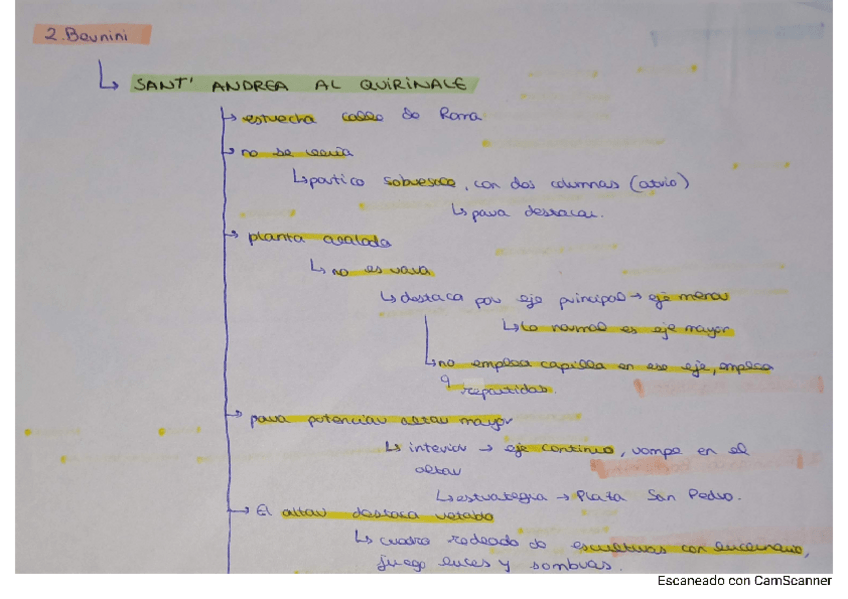 2. Bernini
↳ SANT' ANDREA AL QUIRINALE
→ estrecha calle de Roma
→ no se veía
↳ pórtico sobresale, con dos columnas (atrio)
↳ para destacar.
→ planta ovalada
↳ no es rara
↳ destaca por eje principal → eje menor
↳ Lo normal es eje mayor
↳ no emplea capilla en ese eje, emplea
9 repartidas.
→ para potenciar altar mayor
↳ interior → eje continuo, rompe en el
altar
↳ estrategia → Plaza San Pedro.
→ El altar destaca
↳ cuadro rodeado de esculturas con
juego luces y sombras.
Escaneado con CamScanner